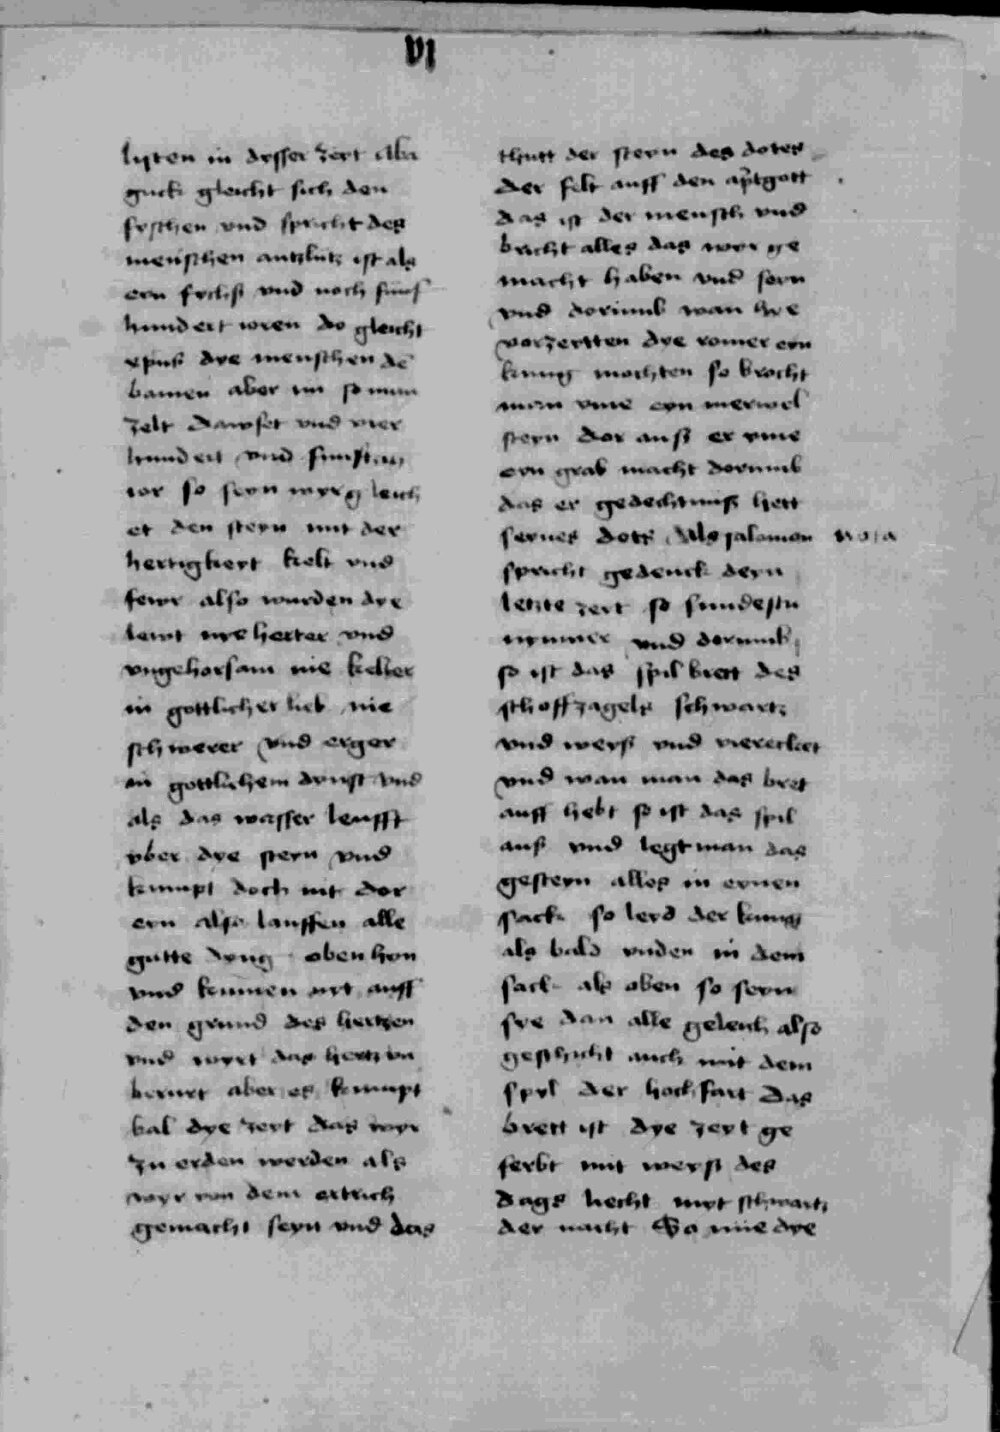 VI
lyten in dysser zeyt Aba
guck gleicht sich den
fyschen vnd spricht des
menschen antzlutz ist als
eyn fyclisß vnd noch funf
hundert ioren do gleicht
dye menschen dē
bamen aber nu so man
zelt dawset vnd vier
hundert vnd
ior so seyn wyr gleich
et den steyn mit der
hertigkeyt kelt vnd
fewr also wurden dye
lewt nye herter vnd
vngehorsam nie kelter
in gottlicher lieb nie
schwerer vnd erger
in gottlichem dynst vnd
als das wasser leufft
vber dye steyn vnd
kumpt doch nit dor
eyn also lauffen alle
gutte dyng oben hyn
vnd kumen nyt auff
den grund des hertzen
vnd wyrt das hertz vn
berurt aber es kumpt
bal dye zeyt das wyr
zu erden werden als
wyr von dem ertrich
gemacht seyn vnd das
thutt der steyn des dotes
der felt auff den aptgott
das ist der mensch vnd
bricht alles das wyr ge
macht haben vnd seyn
vnd dorumb wan hye
vorzeytten dye romer eyn
kunig mochten so brocht
man yme eyn merwel
steyn dor auß er yme
eyn grab macht dorumb
das er gedechtnuß hett
seynes dots Als salomon nota
spricht gedenck deyn
letzte zeyt so sundestu
nymmer vnd dorumb
so ist das spil brett des
schoffzagels schwartz
vnd weyß vnd viereckct
vnd wan man das bret
auff hebt so ist das spil
auß vnd legt man das
gesteyn alles in eynen
sack so leyd der kunig
als bald vnden in dem
sack als oben so seyn
sye dan alle geleich also
geschicht auch mit dem
spyl der hochfart das
brett ist dye zeyt ge
ferbt mit weyß des
dags liecht myt schwartz
der nacht So nue dye